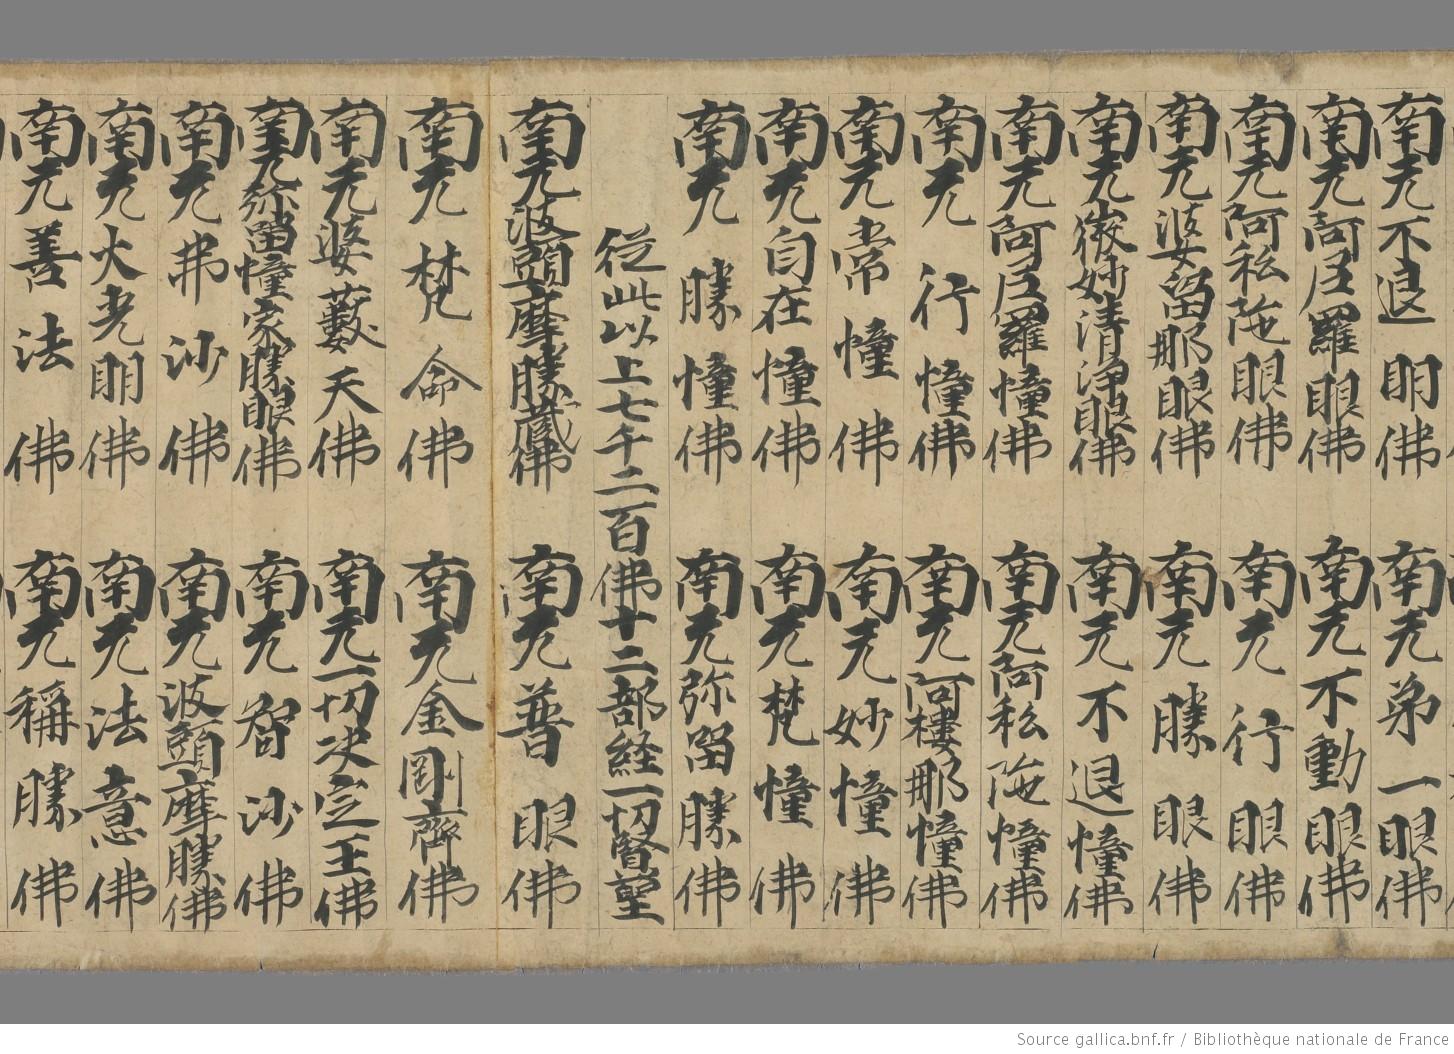 南无不退眼佛　南无第一眼佛
南无阿尼羅眼佛　南无不動眼佛
南无阿私陁眼佛　南无行眼佛
南无婆留那眼佛　南无勝眼佛
南无微妙清淨眼佛　南无不退幢佛
南无阿尼羅幢佛　南无阿私陁幢佛
南无行幢佛　南无阿樓那幢佛
南无常幢佛　南无妙幢佛
南无自在幢佛　南无梵幢佛
南无勝幢佛　南无弥留勝佛
從此以上七千二百佛十二部経一切賢聖
南无波頭摩勝藏佛　南无普眼佛
南无梵命佛　南无金剛齊佛
南无婆藪天佛　南无一切决定王佛
南无弥留幢家勝眼佛　南无智沙佛
南无弗沙佛　南无波頭摩勝佛
南无大光明佛　南无法意佛
南无善法佛　南无稱勝佛
Source gallica.bnf.fr / Bibliothèque nationale de France